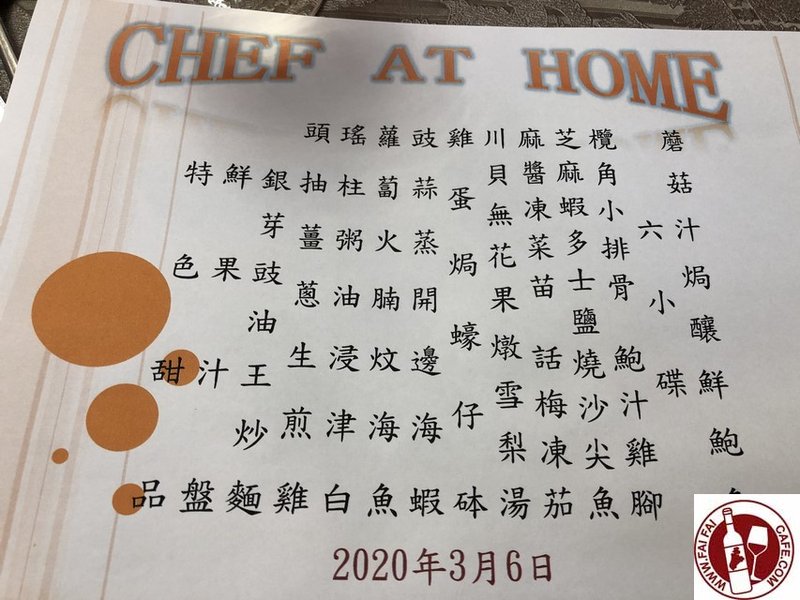 CHEF AT HOME
蘑菇汁焗釀鮮鮑
六小碟
欖角小排骨 鮑汁雞腳
芝麻蝦多士 鹽燒沙尖魚
麻醬凍菜苗 話梅凍茄
川貝無花果燉雪梨湯
雞蛋焗蠔仔砵
豉蒜蒸開邊海蝦
蘿蔔火腩炆海魚
瑤柱粥油浸津白
頭抽薑蔥生煎雞
銀芽豉油王炒麵
鮮果汁盤
特色甜品
2020年3月6日
WWW.FAI FAI CAFE.COM